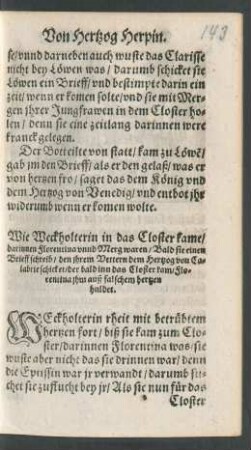 Von Hertzog Herpin.
143
se/vnnd darneben auch wuste das Clarisse
nicht bey Löwen was/ darumb schicket sie
Löwen ein Brieff/ vnd bestimpte darin ein
zeit/ wenn er komen solte/vnd sie mit Mer-
gen jhrer Jungfrawen in dem Closter ho-
len/ denn sie eine zeitlang darinnen were
kranck gelegen.
Der Botteilte von statt/ kam zu Löwē/
gab jm den Brieff/ als er den gelaß/ was er
von hertzen fro/ saget das dem König vnd
dem Hertzog von Venedig/ vnd entbot jhr
widerumb wenn er komen wolte.
Wie Weckholterin in das Closter kame/
darinnen Florentina vnnd Merg waren/ Bald sie einen
Brieff schreib/ den jhrem Vettern dem Hertzog von Ca-
labrie schicket/der bald inn das Closter kam/ Flo-
rentina jhm auß falschem hertzen
huldet.
WEckholterin rheit mit betrübtem
hertzen fort/ biß sie kam zum Clo-
ster/darinnen Florentina was/sie
wuste aber nicht das sie drinnen war/ denn
die Eptissin war jr verwandt/ darumb su-
chet sie zuflucht bey jr/ Als sie nun für das
Closter